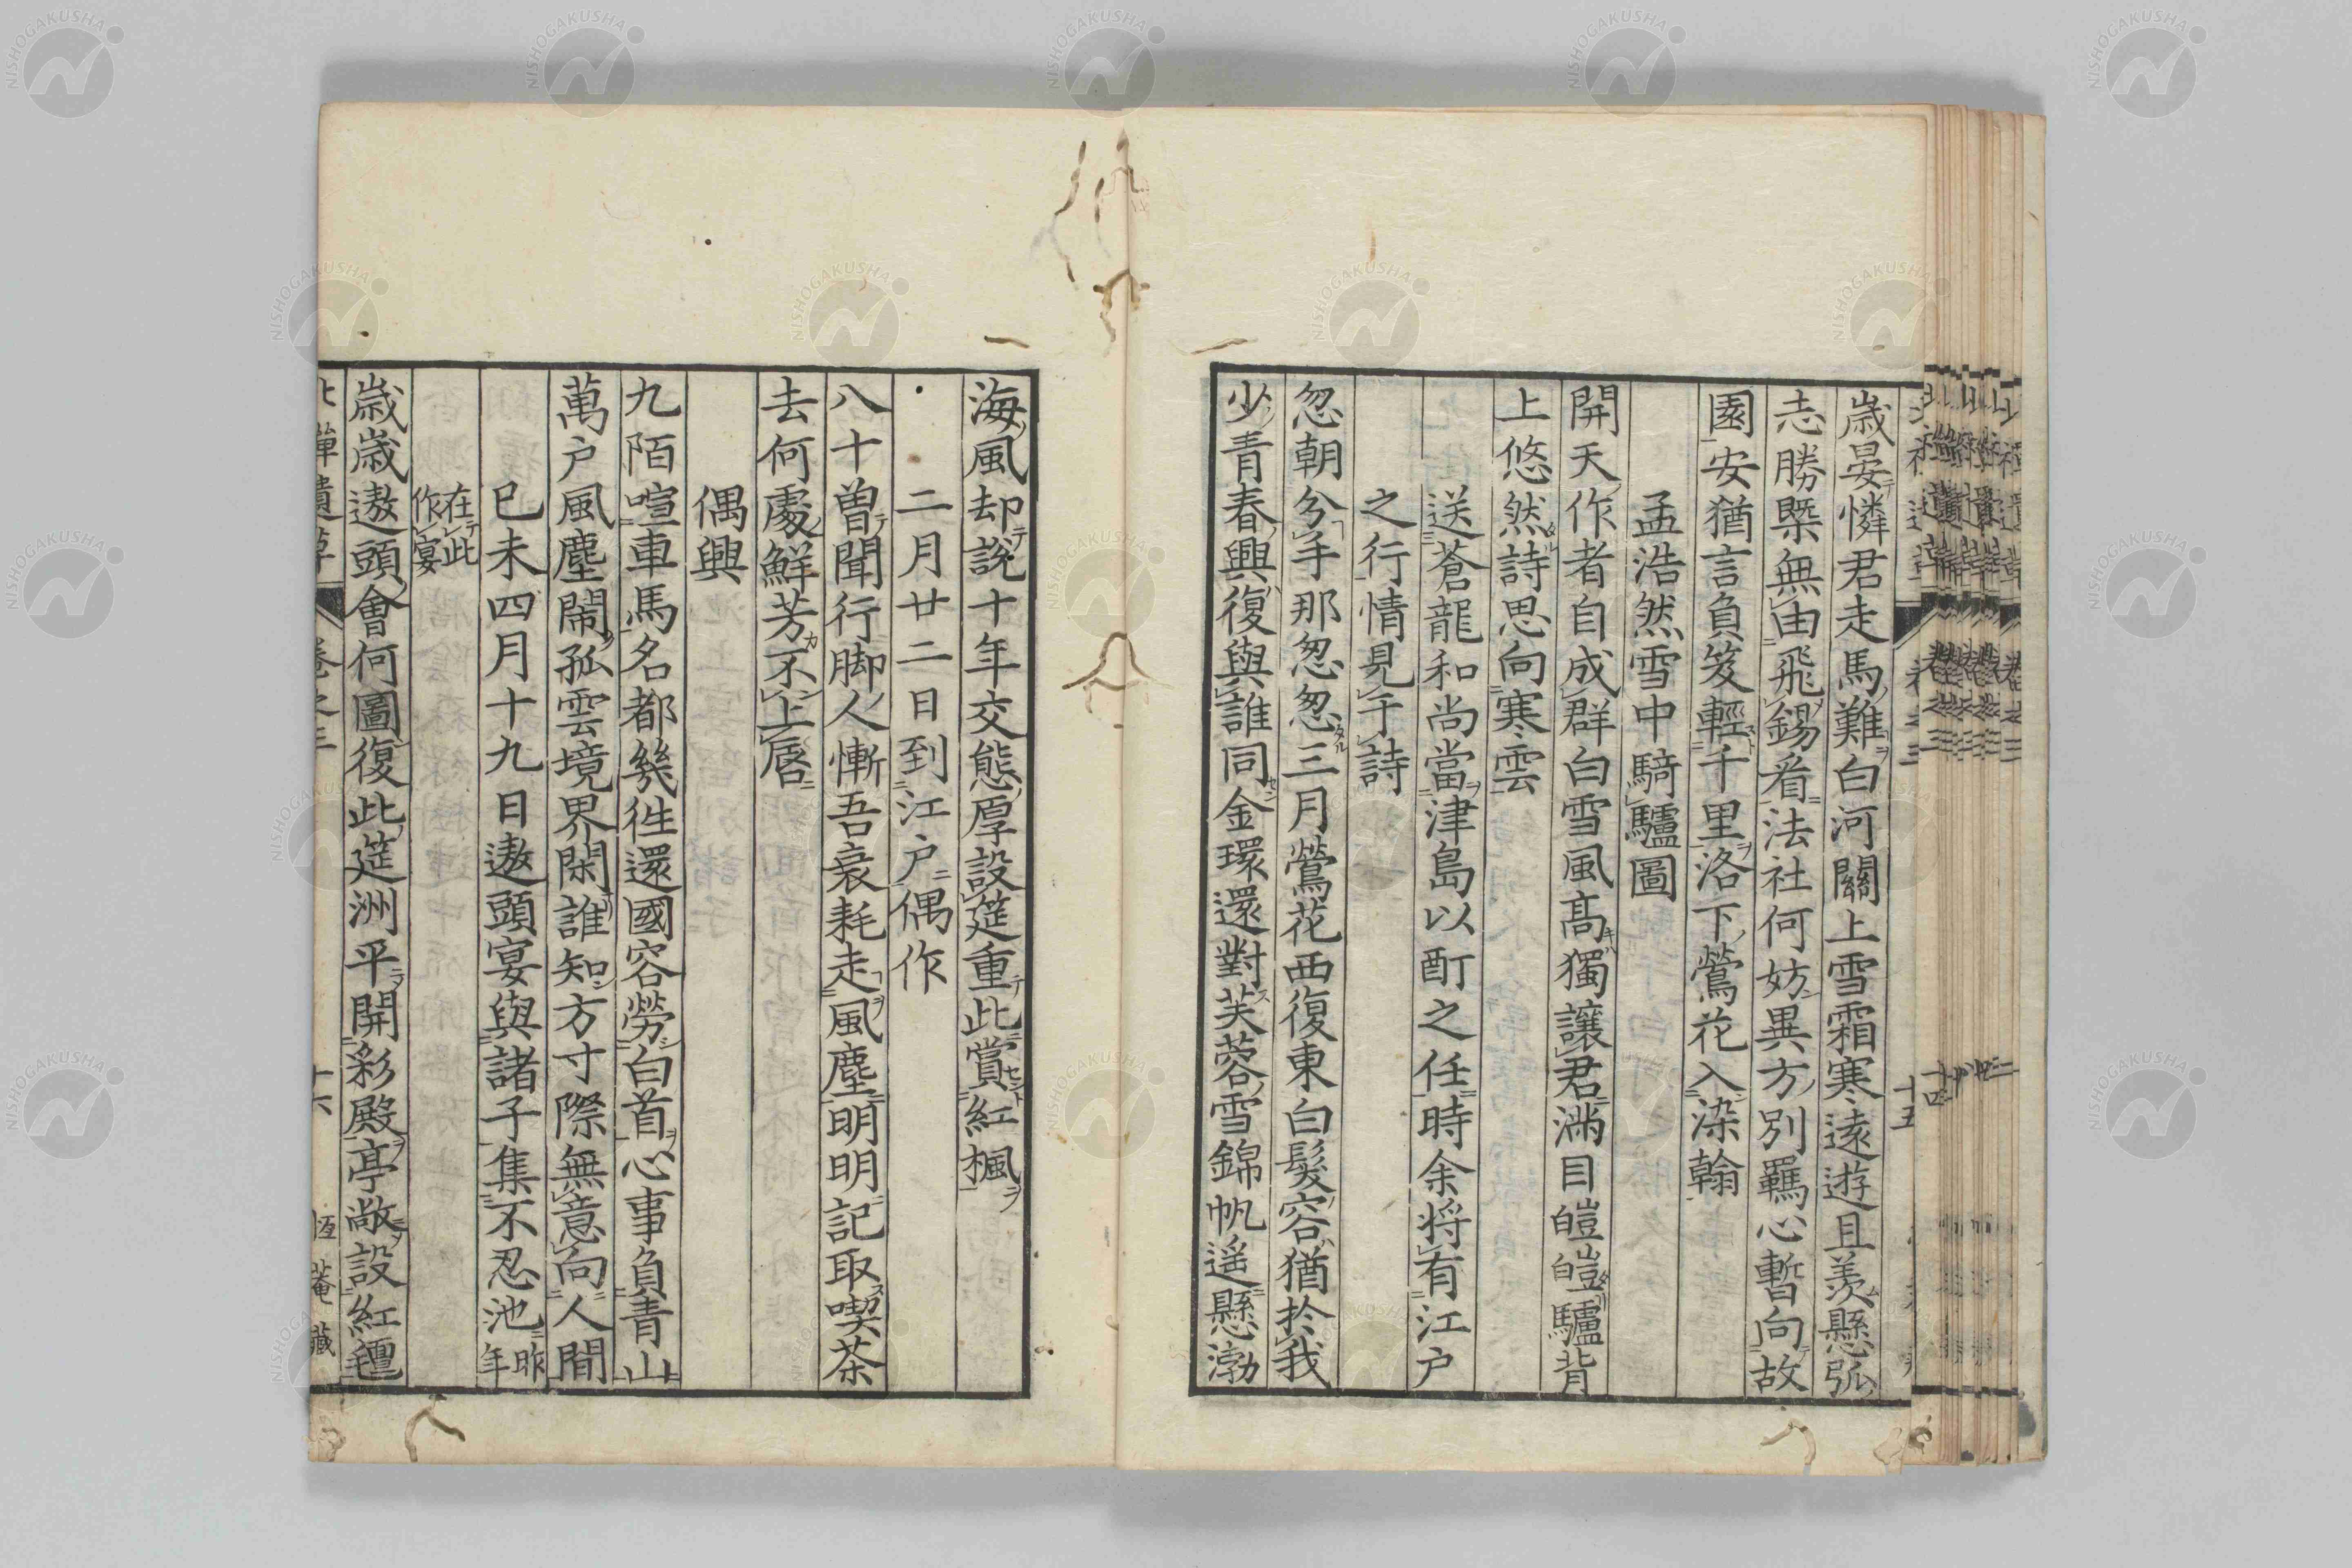 歳晏憐君走馬難白河關上雪霜寒遠遊且羨懸弧
志勝槩無由飛錫看法社何妨異方別羈心暫向故
園安猶言負笈輕千里洛下鶯花入染翰
孟浩然雪中騎驢圖
開天作者自成群白雪風高獨讓君滿目皚皚驢背
上悠然詩思向寒雲
送蒼龍和尚當津島以酊之任時余將有江戶
之行情見于詩
忽朝分手那怱怱三月鶯花西復東白髮容猶於我
少青春興復與誰同金環還對芙蓉雪錦帆遥懸渤
海風却說十年交態厚設筵重此賞紅楓
二月廿二日到江戶偶作
八十曾聞行脚人慚吾衰耗走風塵明明記取喫茶
去何處鮮芳不上唇
偶興
九陌喧車馬名都幾徃還國容勞白首心事負青山
萬戶風塵鬧孤雲境界閑誰知方寸際無意向人間
已未四月十九日遨頭宴與諸子集不忍池昨年
在此作宴
歳歳遨頭會何圖復此筵洲平開彩殿亭敞設紅氈
卷之三
十六